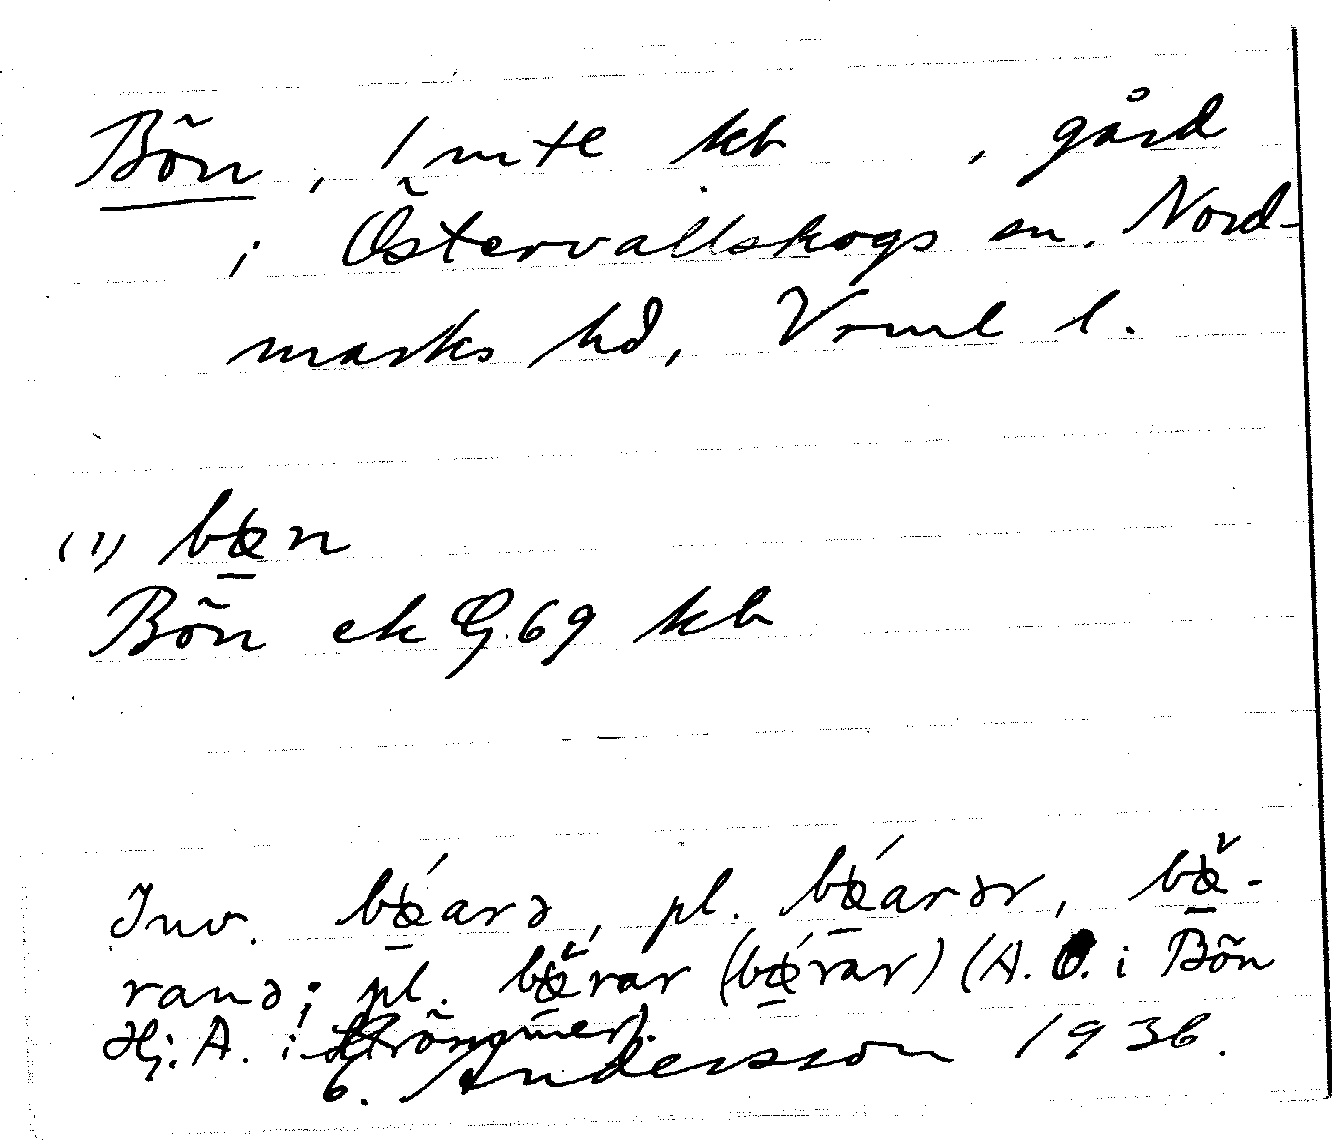 Bön, 1 mtl kb , gård
i Östervallskogs sn. Nord-
marks hd, Vrml l.
(1) bœ̲n
Bön ek G.69 kb
Inv. bœ̲́arə, pl. bœ̲́arər, bœ̲̌-
ranə; pl. bœ̲̌rar (bœ̲́rar) (A. O. i Bön
Hj. A. i
E. Andersson 1936.